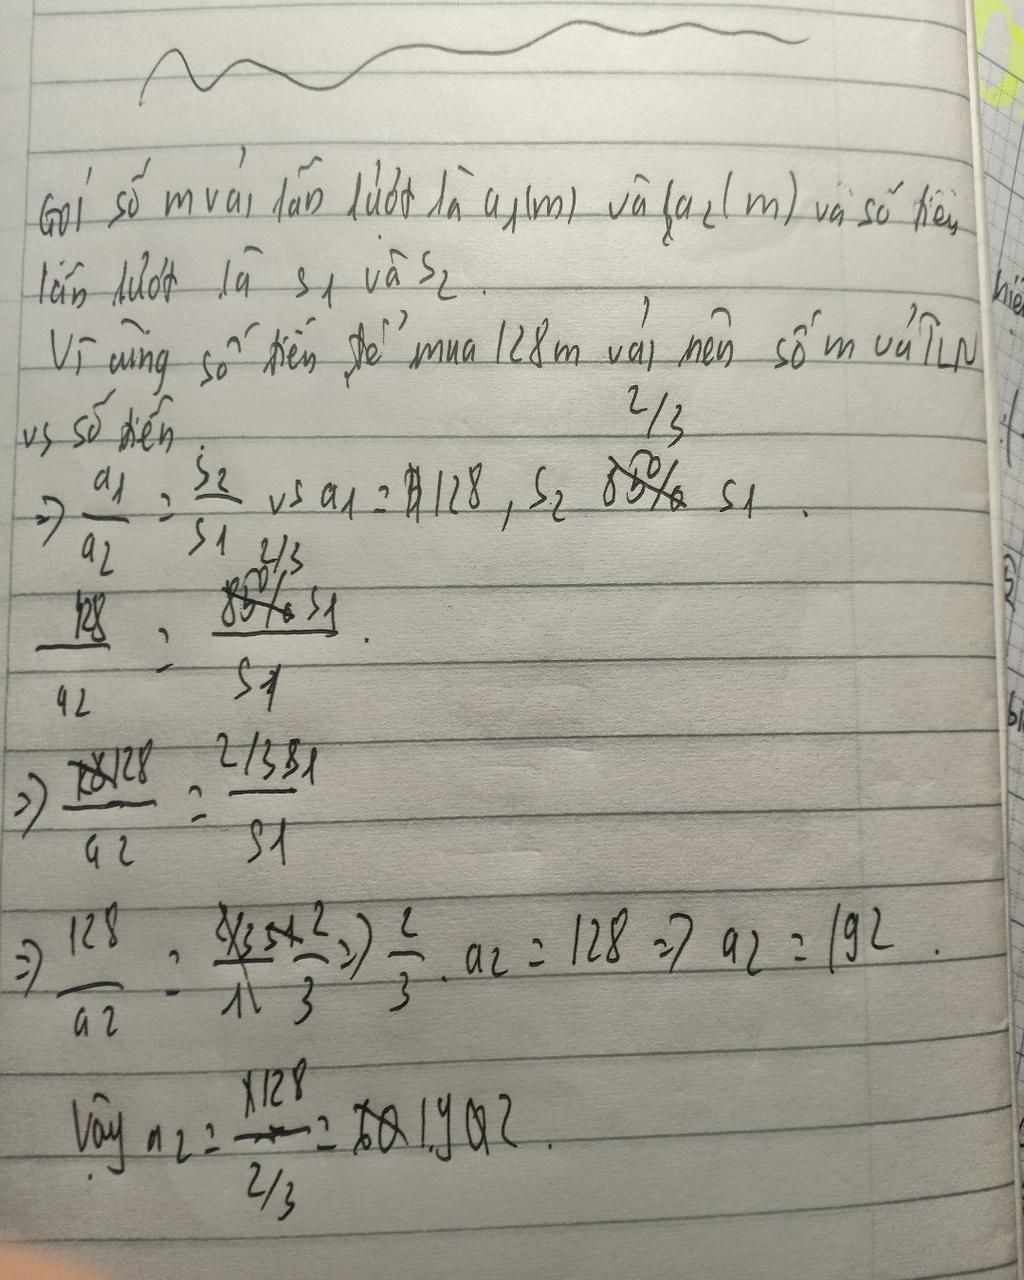 Gọi số m vải lần lượt là a1(m) và a2(m) và số tiền
lần lượt là s1 và s2.
Vì cùng số tiền để mua 128m vải nên số m vải TLN
vs số tiền.
2/3
=> a1/a2 = s2/s1 vs a1 = 128, s2 85% s1.
2/3
128/a2 = 85% s1/s1.
=> 128/a2 = 2/3 s1/s1
=> 128/a2 = 2/3 => 2/3 . a2 = 128 => a2 = 192.
Vậy a2 = 128/2/3 = 192.